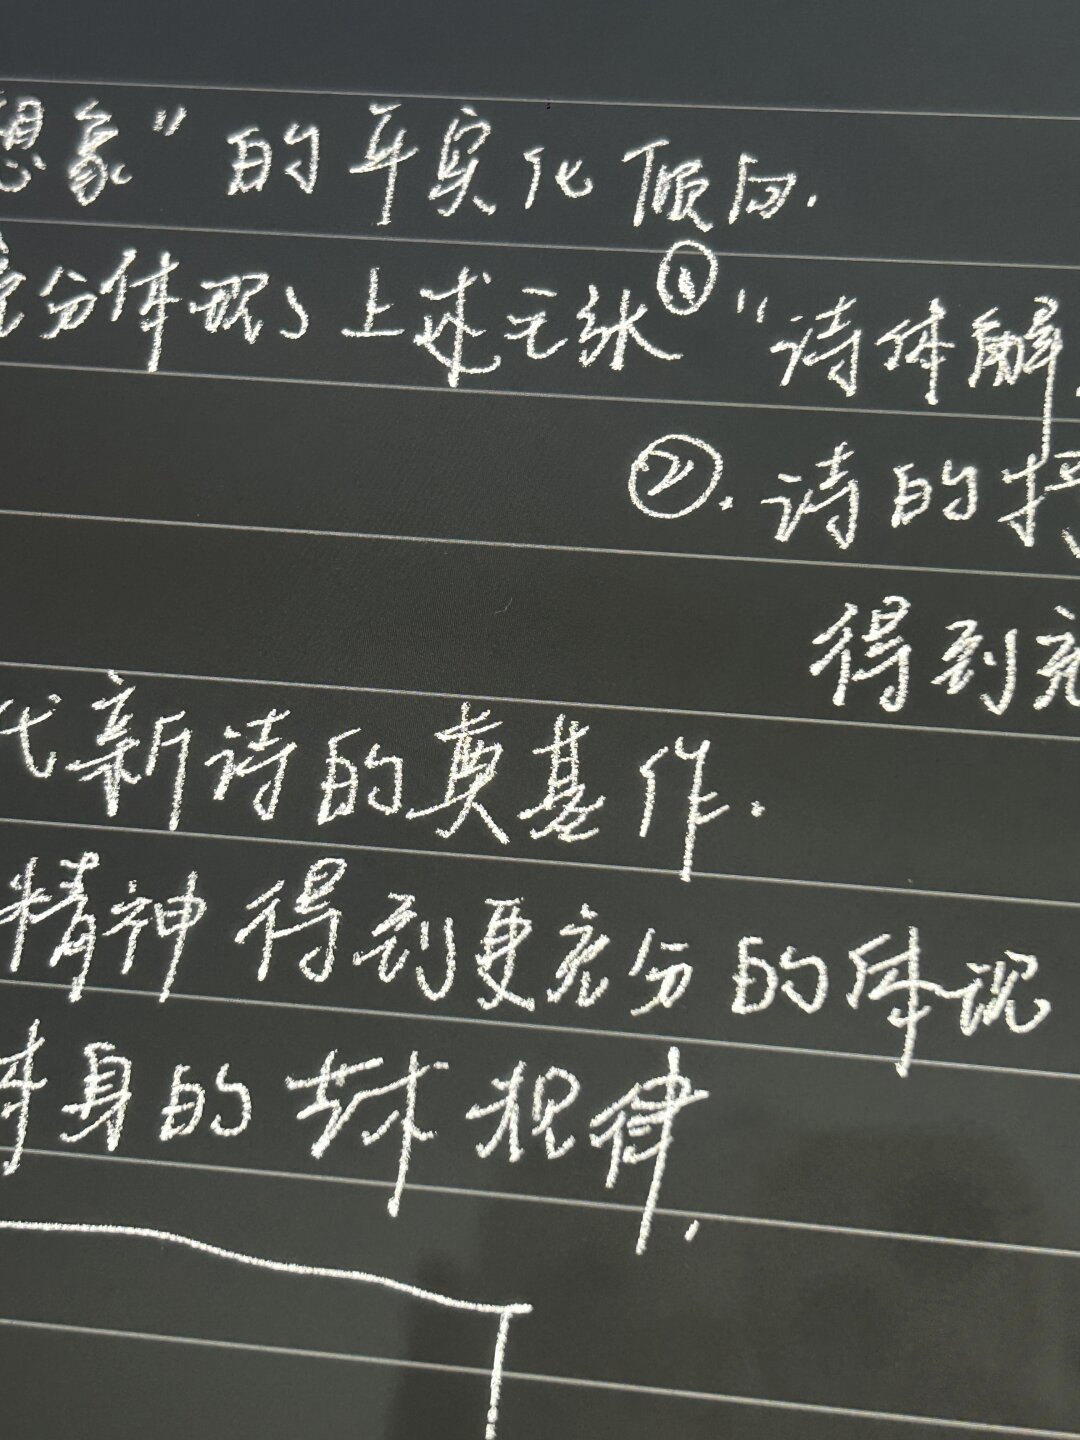 想象”的平实化倾向.
充分体现了上述主张①“诗体解
②.诗的抒
得到充
代新诗的奠基作.
精神得到更充分的体现
本身的艺术规律.